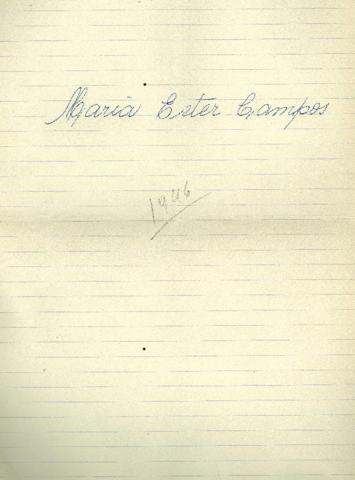 Maria Ester Campos
1946